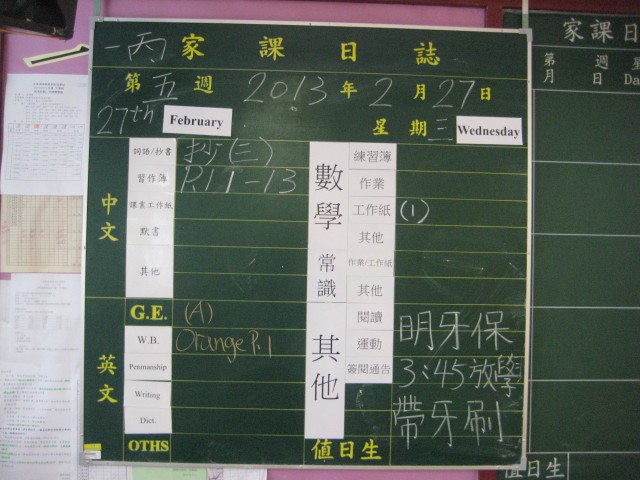 一丙 家課日誌
第 五 週 2013 年 2 月 27 日
27th February 星期 三 Wednesday
中文
詞語/抄書 抄(三)
習作簿 P.11-13
課業工作紙
默書
其他
英文
G.E. (A)
W.B. Orange P.1
Penmanship
Writing
Dict.
OTHS
數學
練習簿
作業
工作紙 (1)
其他
常識
作業/工作紙
其他
其他
閱讀 明牙保
運動
簽閱通告 3:45放學
帶牙刷
值日生
家課日
第 週 星
月 日 Da
值日生